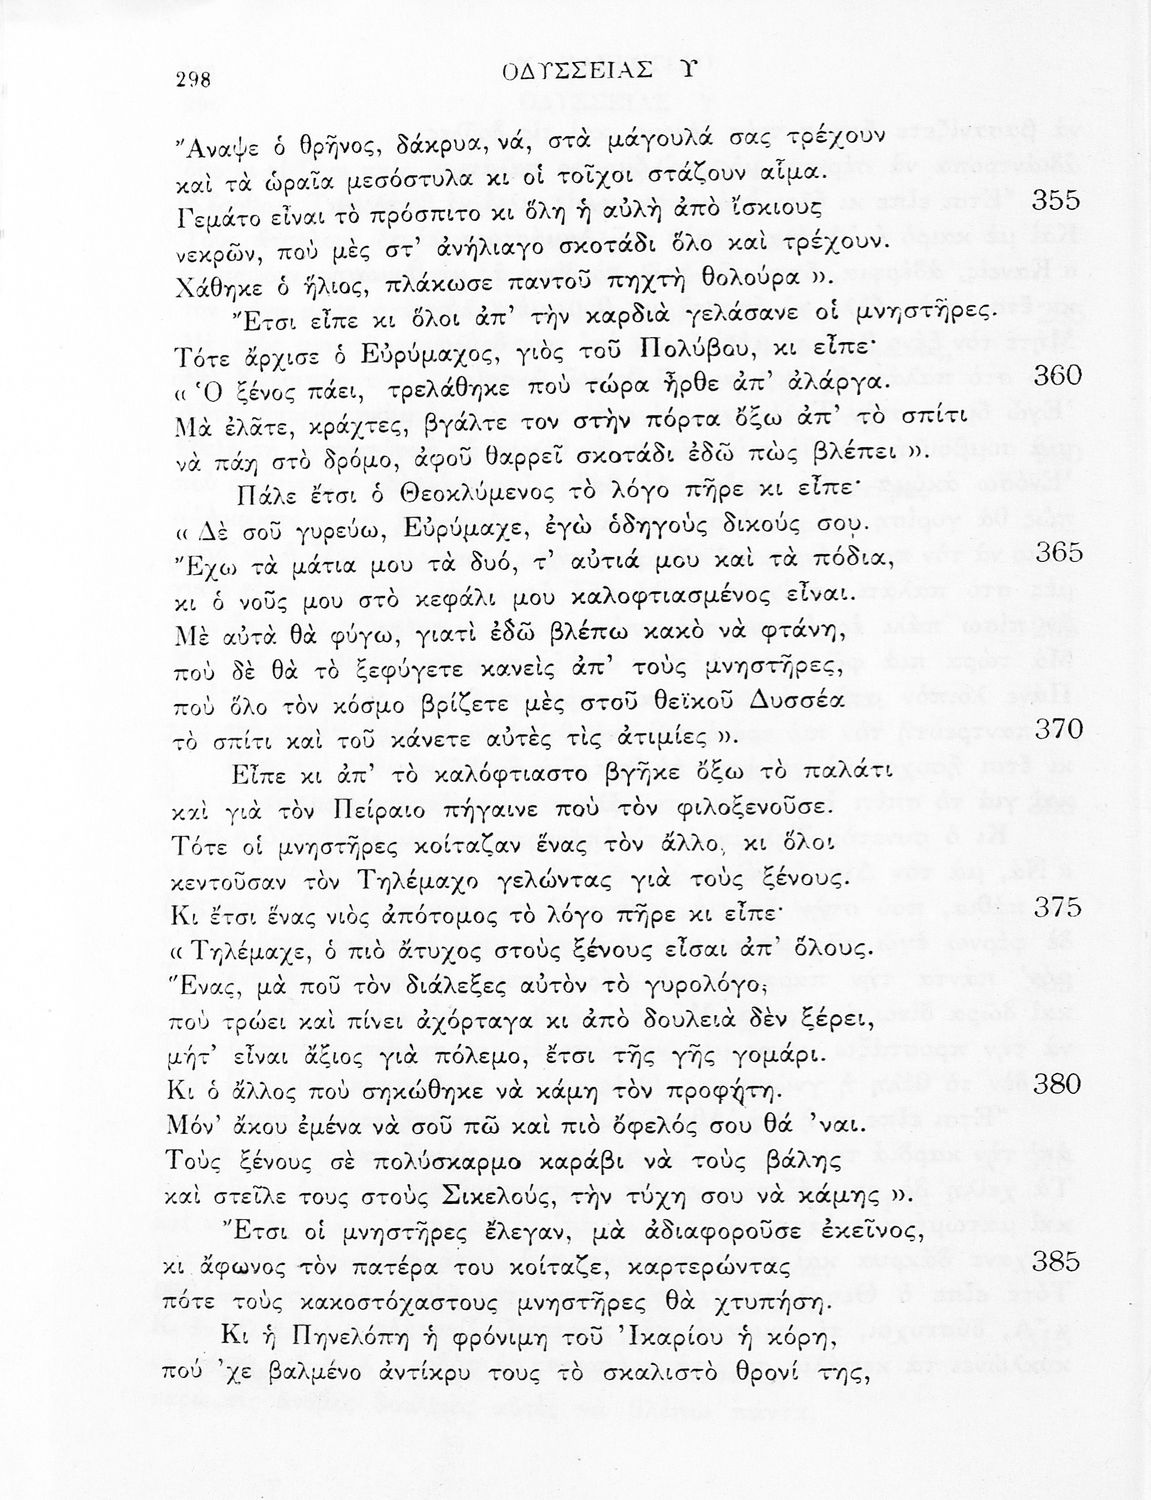 298
ΟΔΥΣΣΕΙΑΣ Υ
Ἄναψε ὁ θρῆνος, δάκρυα, νά, στὰ μάγουλά σας τρέχουν
καὶ τὰ ὡραῖα μεσόστυλα κι οἱ τοῖχοι στάζουν αἷμα.
Γεμάτο εἶναι τὸ πρόσπιτο κι ὅλη ἡ αὐλὴ ἀπὸ ἴσκιους 355
νεκρῶν, ποὺ μὲς στ’ ἀνήλιαγο σκοτάδι ὅλο καὶ τρέχουν.
Χάθηκε ὁ ἥλιος, πλάκωσε παντοῦ πηχτὴ θολούρα ».
Ἔτσι εἶπε κι ὅλοι ἀπ’ τὴν καρδιὰ γελάσανε οἱ μνηστῆρες.
Τότε ἄρχισε ὁ Εὐρύμαχος, γιὸς τοῦ Πολύβου, κι εἶπε·
« Ὁ ξένος πάει, τρελάθηκε ποὺ τώρα ἦρθε ἀπ’ ἀλάργα. 360
Μὰ ἐλᾶτε, κράχτες, βγάλτε τον στὴν πόρτα ὄξω ἀπ’ τὸ σπίτι
νὰ πάη στὸ δρόμο, ἀφοῦ θαρρεῖ σκοτάδι ἐδῶ πὼς βλέπει ».
Πάλε ἔτσι ὁ Θεοκλύμενος τὸ λόγο πῆρε κι εἶπε·
« Δὲ σοῦ γυρεύω, Εὐρύμαχε, ἐγὼ ὁδηγοὺς δικούς σου.
Ἔχω τὰ μάτια μου τὰ δυό, τ’ αὐτιά μου καὶ τὰ πόδια, 365
κι ὁ νοῦς μου στὸ κεφάλι μου καλοφτιασμένος εἶναι.
Μὲ αὐτὰ θὰ φύγω, γιατὶ ἐδῶ βλέπω κακὸ νὰ φτάνη,
ποὺ δὲ θὰ τὸ ξεφύγετε κανεὶς ἀπ’ τοὺς μνηστῆρες,
ποὺ ὅλο τὸν κόσμο βρίζετε μὲς στοῦ θεϊκοῦ Δυσσέα
τὸ σπίτι καὶ τοῦ κάνετε αὐτὲς τὶς ἀτιμίες ». 370
Εἶπε κι ἀπ’ τὸ καλόφτιαστο βγῆκε ὄξω τὸ παλάτι
καὶ γιὰ τὸν Πείραιο πήγαινε ποὺ τὸν φιλοξενοῦσε.
Τότε οἱ μνηστῆρες κοίταζαν ἕνας τὸν ἄλλο, κι ὅλοι
κεντοῦσαν τὸν Τηλέμαχο γελώντας γιὰ τοὺς ξένους.
Κι ἔτσι ἕνας νιὸς ἀπότομος τὸ λόγο πῆρε κι εἶπε· 375
« Τηλέμαχε, ὁ πιὸ ἄτυχος στοὺς ξένους εἶσαι ἀπ’ ὅλους.
Ἕνας, μὰ ποῦ τὸν διάλεξες αὐτὸν τὸ γυρολόγο;
ποὺ τρώει καὶ πίνει ἀχόρταγα κι ἀπὸ δουλειὰ δὲν ξέρει,
μήτ’ εἶναι ἄξιος γιὰ πόλεμο, ἔτσι τῆς γῆς γομάρι.
Κι ὁ ἄλλος ποὺ σηκώθηκε νὰ κάμη τὸν προφήτη. 380
Μόν’ ἄκου ἐμένα νὰ σοῦ πῶ καὶ πιὸ ὄφελός σου θά ’ναι.
Τοὺς ξένους σὲ πολύσκαρμο καράβι νὰ τοὺς βάλης
καὶ στεῖλε τους στοὺς Σικελούς, τὴν τύχη σου νὰ κάμης ».
Ἔτσι οἱ μνηστῆρες ἔλεγαν, μὰ ἀδιαφοροῦσε ἐκεῖνος,
κι ἄφωνος τὸν πατέρα του κοίταζε, καρτερώντας 385
πότε τοὺς κακοστόχαστους μνηστῆρες θὰ χτυπήση.
Κι ἡ Πηνελόπη ἡ φρόνιμη τοῦ Ἰκαρίου ἡ κόρη,
πού ’χε βαλμένο ἀντίκρυ τους τὸ σκαλιστὸ θρονί της,